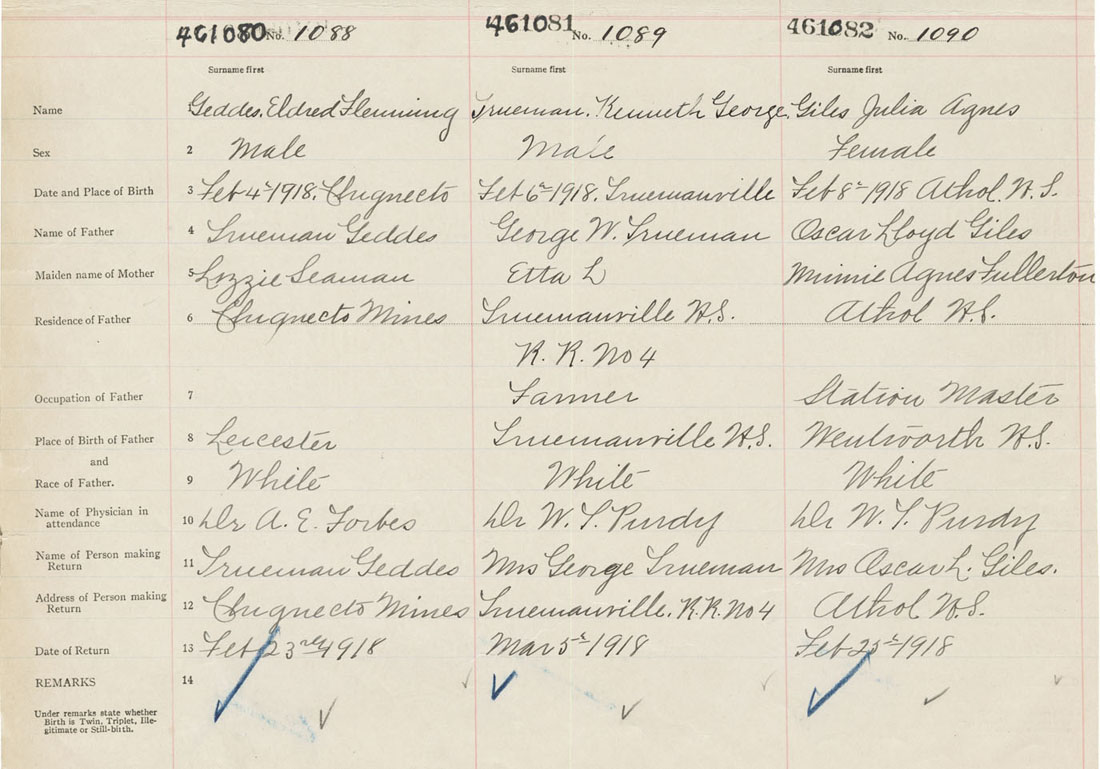 461080 No. 1088 461081 No. 1089 461082 No. 1090
Surname first Surname first Surname first
Name 1 Geddes, Eldred Flemming Trueman, Kenneth George Giles Julia Agnes
Sex 2 Male Male Female
Date and Place of Birth 3 Feb 4th 1918. Chignecto Feb 6th 1918. Truemanville Feb 8th 1918 Athol N.S.
Name of Father 4 Trueman Geddes George W. Trueman Oscar Lloyd Giles
Maiden name of Mother 5 Lizzie Seaman Etta L Minnie Agnes Fullerton
Residence of Father 6 Chignecto Mines Truemanville N.S. Athol N.S.
R. R. No 4
Occupation of Father 7 Farmer Station Master
Place of Birth of Father 8 Leicester Truemanville N.S. Wentworth N.S.
and
Race of Father. 9 White White White
Name of Physician in
attendance 10 Dr A. E. Forbes Dr W. T. Purdy Dr W. T. Purdy
Name of Person making
Return 11 Trueman Geddes Mrs George Trueman Mrs Oscar L. Giles.
Address of Person making
Return 12 Chignecto Mines Truemanville. R.R. No 4 Athol N.S.
Date of Return 13 Feb 23rd 1918 Mar 5th 1918 Feb 25th 1918
REMARKS 14
Under remarks state whether
Birth is Twin, Triplet, Ille-
gitimate or Still-birth.